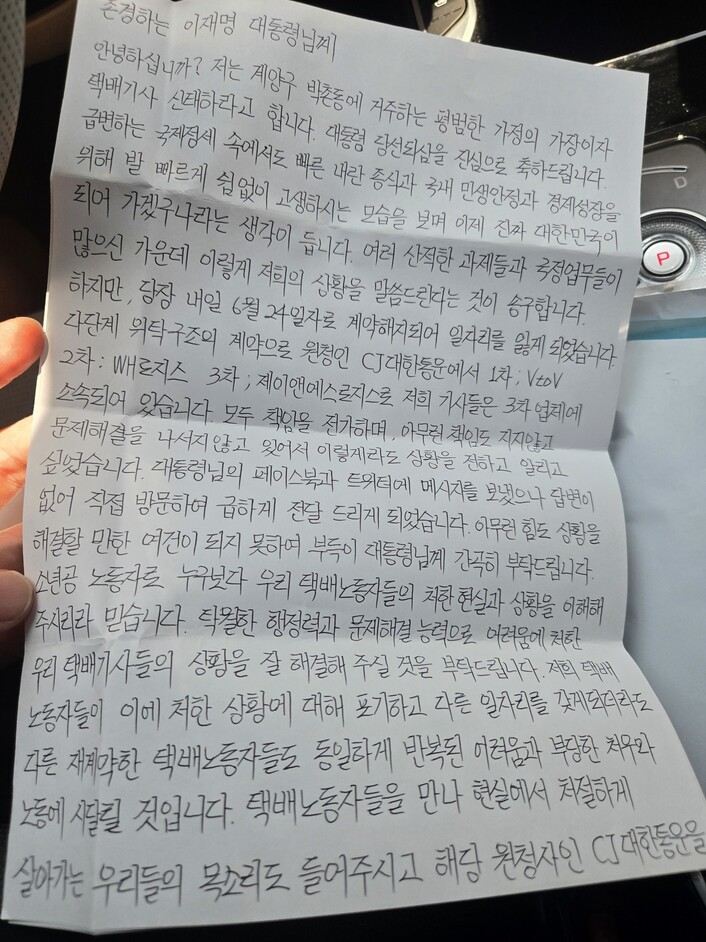 존경하는 이재명 대통령님께
안녕하십니까? 저는 계양구 박촌동에 거주하는 평범한 가정의 가장이자
택배기사 신태하라고 합니다. 대통령 당선되심을 진심으로 축하드립니다.
급변하는 국제정세 속에서도 빠른 내란 종식과 국내 민생안정과 경제성장을
위해 발 빠르게 쉼없이 고생하시는 모습을 보며 이제 진짜 대한민국이
되어 가겠구나라는 생각이 듭니다. 여러 산적한 과제들과 국정업무들이
많으신 가운데 이렇게 저희의 상황을 말씀드린다는 것이 송구합니다.
하지만, 당장 내일 6월 24일자로 계약해지되어 일자리를 잃게 되었습니다.
다단계 위탁구조의 계약으로 원청인 CJ대한통운에서 1차; VtoV
2차: WH로지스 3차; 제이앤에스로지스로 저희 기사들은 3차 업체에
소속되어 있습니다. 모두 책임을 전가하며, 아무런 책임도 지지않고
문제해결을 나서지않고 있어서 이렇게라도 상황을 전하고 알리고
싶었습니다. 대통령님의 페이스북과 트위터에 메시지를 보냈으나 답변이
없어 직접 방문하여 급하게 전달 드리게 되었습니다. 아무런 힘도 상황을
해결할 만한 여건이 되지 못하여 부득이 대통령님께 간곡히 부탁드립니다.
소년공 노동자로 누구보다 우리 택배노동자들의 처한 현실과 상황을 이해해
주시리라 믿습니다. 탁월한 행정력과 문제해결 능력으로 어려움에 처한
우리 택배기사들의 상황을 잘 해결해 주실 것을 부탁드립니다. 저희 택배
노동자들이 이에 처한 상황에 대해 포기하고 다른 일자리를 갖게되더라도
다른 재계약한 택배노동자들도 동일하게 반복된 어려움과 부당한 처우와
노동에 시달릴 것입니다. 택배노동자들을 만나 현실에서 처절하게
살아가는 우리들의 목소리도 들어주시고 해당 원청사인 CJ대한통운을
P
D